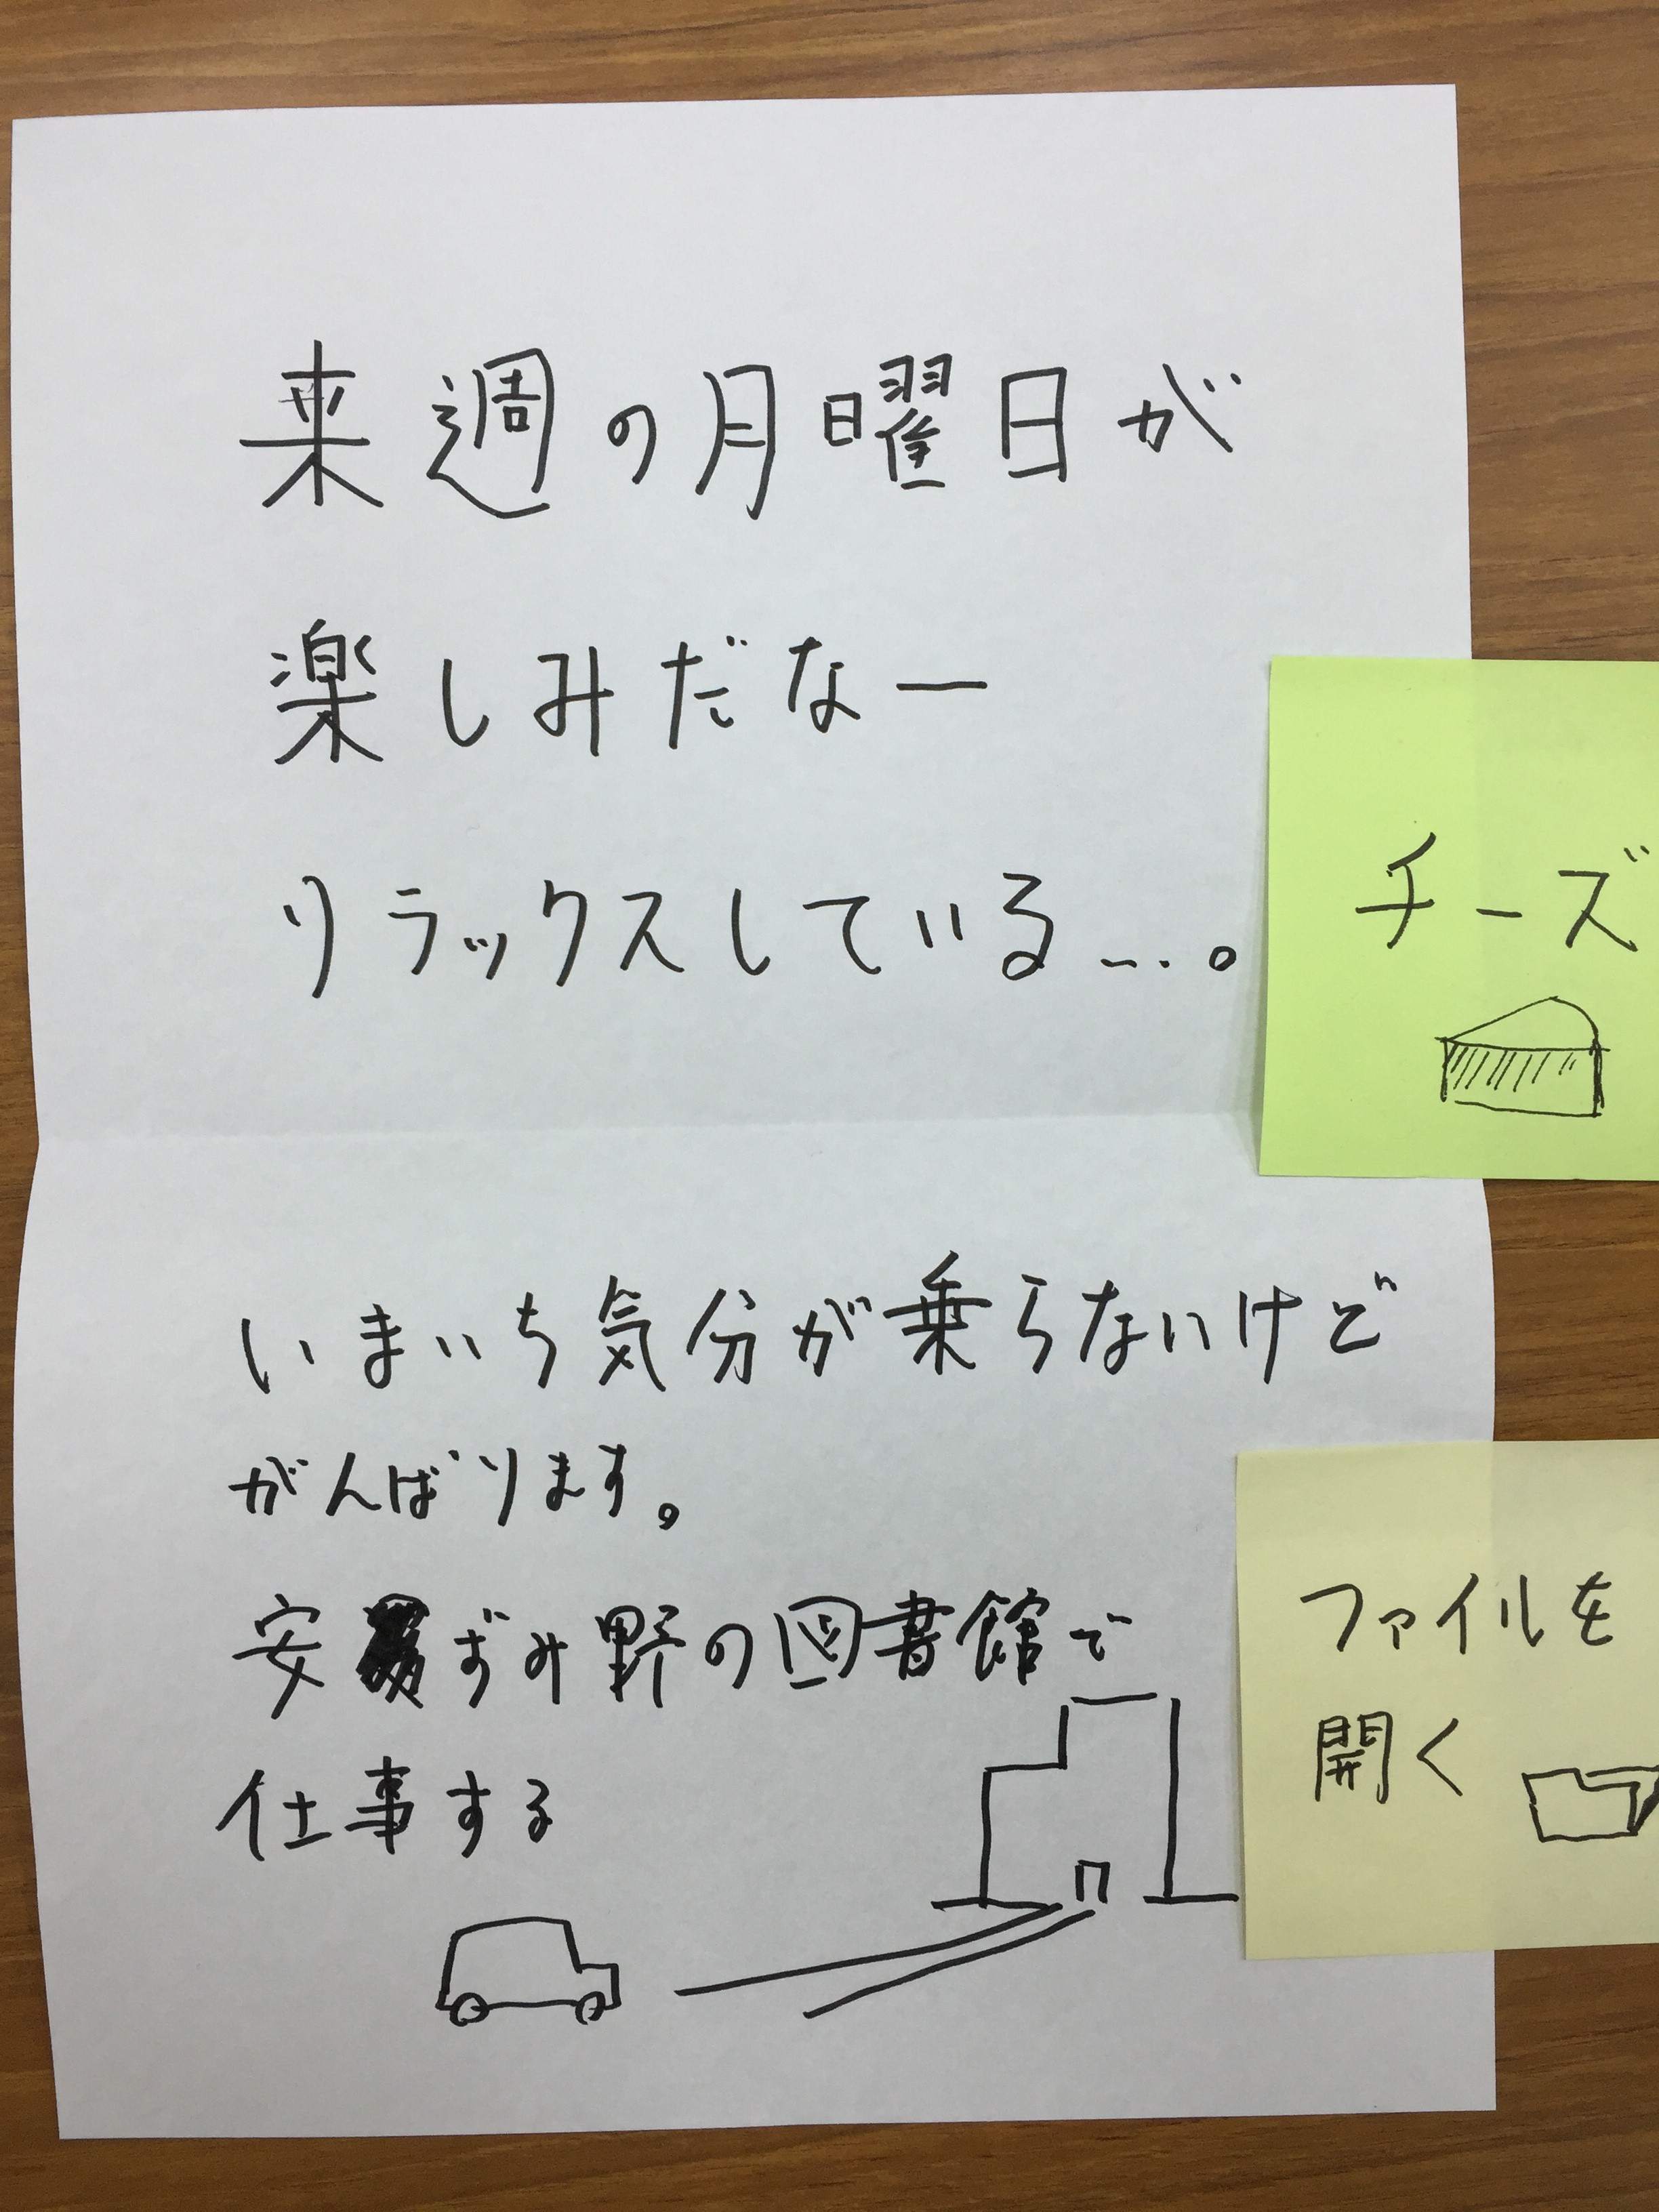 来週の月曜日が
楽しみだなー
リラックスしている…。
チーズ
いまいち気分が乗らないけど
がんばります。
安ずみ野の図書館で
仕事する
ファイルを
開く